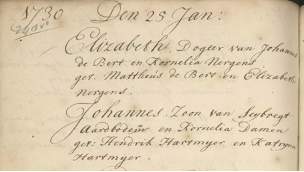 1730 Den 25 Jan:
Elizabeth, Dogter van Johannes
de Bert en Kornelia Nergens
get. Mattheus de Bert en Elizabeth
nergens.
Johannes. Zoon van Seybregt
Aardbodeur en Kornelia Damen
get: Hendrik Hartmyer en Katryna
Hartmyer.